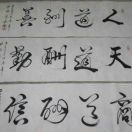 人道酬善
天道酬勤
商道酬信